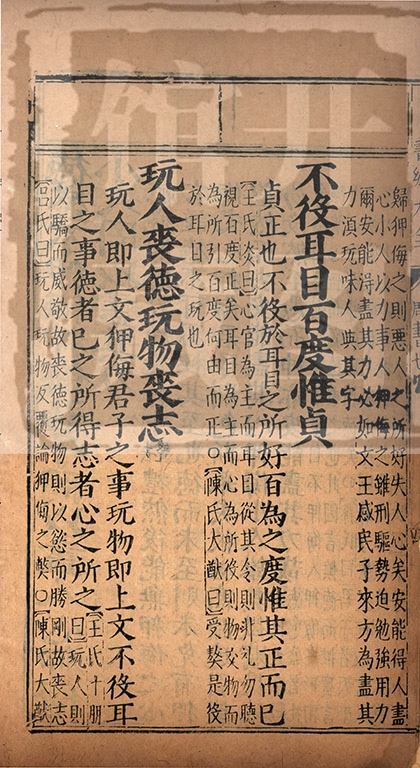 歸狎之則惡人之所好失人心矣安能得人盡
心小人以力事人狎侮之雖刑驅勢迫勉強用力
爾安能得盡其力必如文王感民子來方為盡其
力須玩味人與其字
不役耳目百度惟貞
貞正也不役於耳目之所好百為之度惟其正而已
王氏炎曰心官為主而耳目從其令則非礼勿聽
視百度正矣耳目由為主而心為所役則物交物而
為所引百變何由而正○陳氏大猷曰受獒是役
於耳目之玩也
玩人喪德玩物喪志
玩人即上文狎侮君子之事玩物即上文不役耳
目之事德者已之所得志者心之所之王氏十朋
曰玩人則
以驕而威敬故喪德玩物則以慾而勝剛故喪志
呂氏曰玩人玩物反覆論狎侮之獘○陳氏大猷